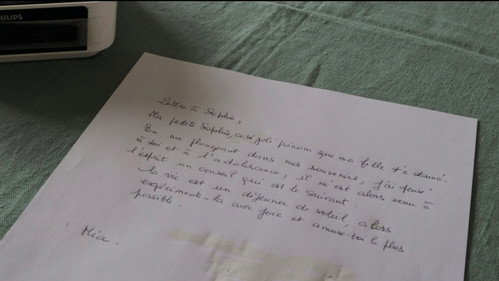 PHILIPS
Lettre à Sophie,
Ma petite Sophie, ce joli prénom que ma fille t'a donné.
En me plongeant dans mes souvenirs, j'ai pensé
à toi et à l'adolescence, il m'est alors venu à
l'esprit un conseil qui est le suivant :
La vie est un déjeuner de soleil, alors
expérimente-la avec joie et amuse-toi le plus
possible.
Mia.